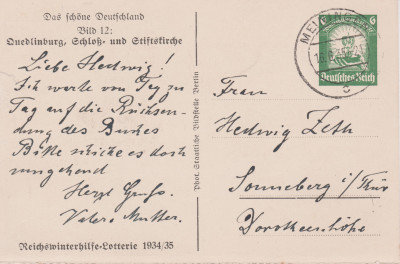 Das schöne Deutschland
Bild 12:
Quedlinburg, Schloß- und Stiftskirche
Liebe Hedwig!
Ich warte von Tag zu
Tag auf die Rücksen-
dung des Buches
Bitte schicke es doch
umgehend
Herzl. Gruß.
Vater u. Mutter.
Reichswinterhilfe-Lotterie 1934/35
Phot. Staatliche Bildstelle Berlin
6
6
Deutsches Reich
Frau
Hedwig Zeth
Sonneberg i/Thür
Dorotheenhöhe